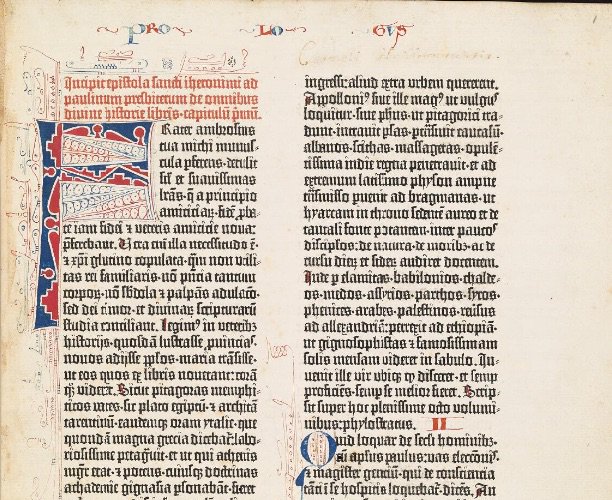 PRO LO GUS
Incipit epistola sancti iheronimi ad
paulinum presbiterum de omnibus
divine historie libris. capitulū pmū.
Frater ambrosius
tua michi munus-
cula pferens. detulit
sil' et suavissimas
lrās. q̄ a principio
amiciciaꝝ. fidē pba-
te iam fidei et veteris amicicie nova:
pferebant. Vera eni illa necessitudo ē.
et xpi glutino copulata. qm̄ non vtili-
tas rei familiaris. nō pntia tantum
corpoꝝ. nō sbdola et palpās adulacō.
sed dei timor. et divinaꝝ scripturarū
studia conciliant. Legim⁹ in veterib⁊
historijs. quosdā lustrasse puincias.
novos adijsse pplos. maria trāsisse.
ut eos quos ex libris noverant: corā
q̄⁊ viderēt. Sicut pitagoras memphi-
ticos vates. sic plato egiptū. et architā
tarentinū. eandemq; oram ytalie. que
quondā magna grecia dicebat᷑. labo-
riosissime peragᷓuit. et ut qui athenis
mgr̄ erat. et potens. cuiusq; doctrinas
achademie gignasia psonabāt. fieret
ingressi: aliud extra urbem quererent.
Appolloni⁹ sive ille mag⁹ ut vulgus
loquitur. sive phus. ut pitagorici tra-
dunt. intravit psas. pt̄sivit caucasū.
albanos. scithas. massagetas. opulē-
tissima indie regna penetravit. et ad
extremum latissimo physon ampne
tn̄smisso puenit ad bragmanas. ut
hyarcam in throno sedentē aureo et de
tantali fonte potantem. inter paucos
discipłos. de natura. de moribꝫ ac de
cursu dieꝝ et sideꝝ audiret docentem.
Inde p elamitas. babilonios. chalde-
os. medos. assyrios. parthos. syros.
phenices. arabes. palestinos. reūsus
ad allexandriā: perrexit ad ethiopiā.
ut gignosophistas et famosissimam
solis mensam videret in sabulo. In-
venit ille vir ubiq; qđ disceret. et semp
proficiēs. semp se melior fieret. Scrip-
sit super hoc plenissime octo volumi-
nibus. phylostratus. II
Quid loquar de secli hominibꝫ.
cū apsus paulus: vas electōis.
et magister gentiū. qui de conscientia
tāti ī se hospitis loquebat᷑. dicēs. An